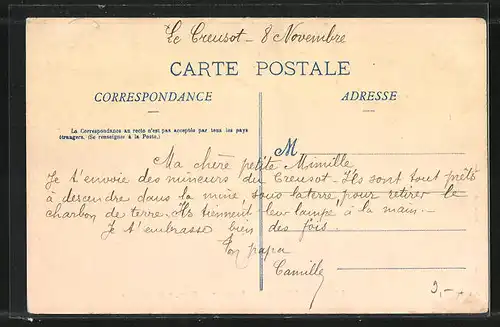 Le Creusot - 8 Novembre
CARTE POSTALE
CORRESPONDANCE
ADRESSE
La Correspondance au recto n'est pas acceptée par tous les pays
étrangers. (Se renseigner à la Poste.)
M
Ma chère petite Mimille
Je t'envoie des mineurs du Creusot - Ils sont tout prêts
à descendre dans la mine, sous la terre, pour retirer le
charbon de terre. Ils tiennent leur lampe à la main -
Je t'embrasse bien des fois.
Ton papa
Camille